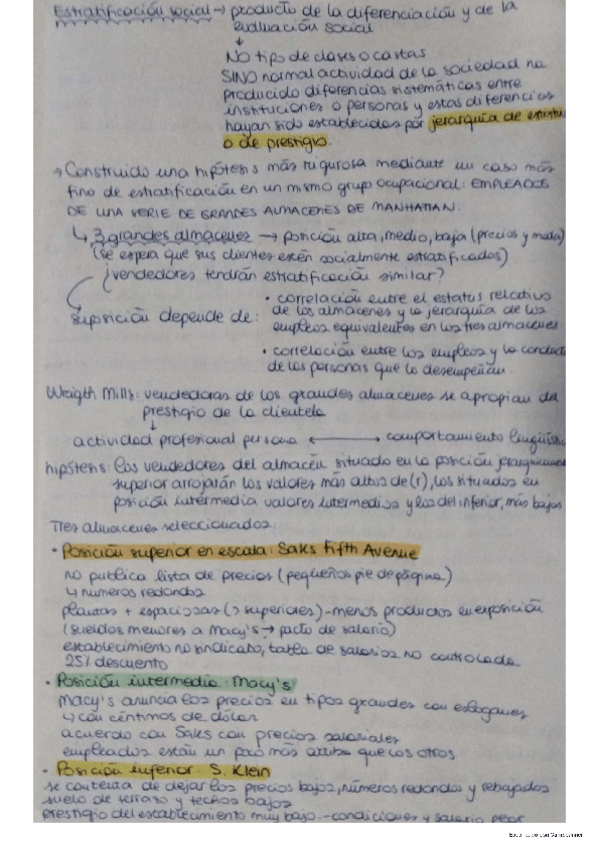 Estratificación social → producto de la diferenciación y de la
evaluación social
↓
NO tipo de clases o castas
SINO normal actividad de la sociedad ha
producido diferencias sistemáticas entre
instituciones o personas y estas diferencias
hayan sido establecidas por jerarquía de
o de prestigio.
→ Construido una hipótesis más rigurosa mediante un caso más
fino de estratificación en un mismo grupo ocupacional: EMPLEADOS
DE UNA SERIE DE GRANDES ALMACENES DE MANHATTAN.
↳ 3 grandes almacenes → posición alta, medio, baja (precios y moda)
(se espera que sus clientes estén socialmente estratificados)
¿vendedores tendrán estratificación similar?
suposición depende de:
• correlación entre el estatus relativo
de los almacenes y la jerarquía de los
empleos equivalentes en los tres almacenes
• correlación entre los empleos y la conducta
de las personas que lo desempeñan.
Wrigth Mills: vendedoras de los grandes almacenes se apropian del
prestigio de la clientela
↓
actividad profesional persona ↔ comportamiento
hipótesis: los vendedores del almacén situado en la posición
superior arrojarán los valores más altos de (r), los situados en
posición intermedia valores intermedios y los del inferior, más bajos
Tres almacenes seleccionados:
• Posición superior en escala: Saks Fifth Avenue
no publica lista de precios (pequeños pie de página)
↳ números redondos
plantas + espaciosas (> superiores) - menos productos en exposición
(sueldos menores a Macy's → pacto de salario)
establecimiento no sindicato, tabla de salarios no controlada
25% descuento
• Posición intermedia: Macy's
Macy's anuncia los precios en tipos grandes con eslóganes
↳ con céntimos de dólar
acuerdo con Saks con precios salariales
empleados están un poco más arriba que los otros
• Posición inferior: S. Klein
se contenta de dejar los precios bajos, números redondos y rebajados
suelo de terrazo y techos bajos
prestigio del establecimiento muy bajo. - condiciones y salario peor